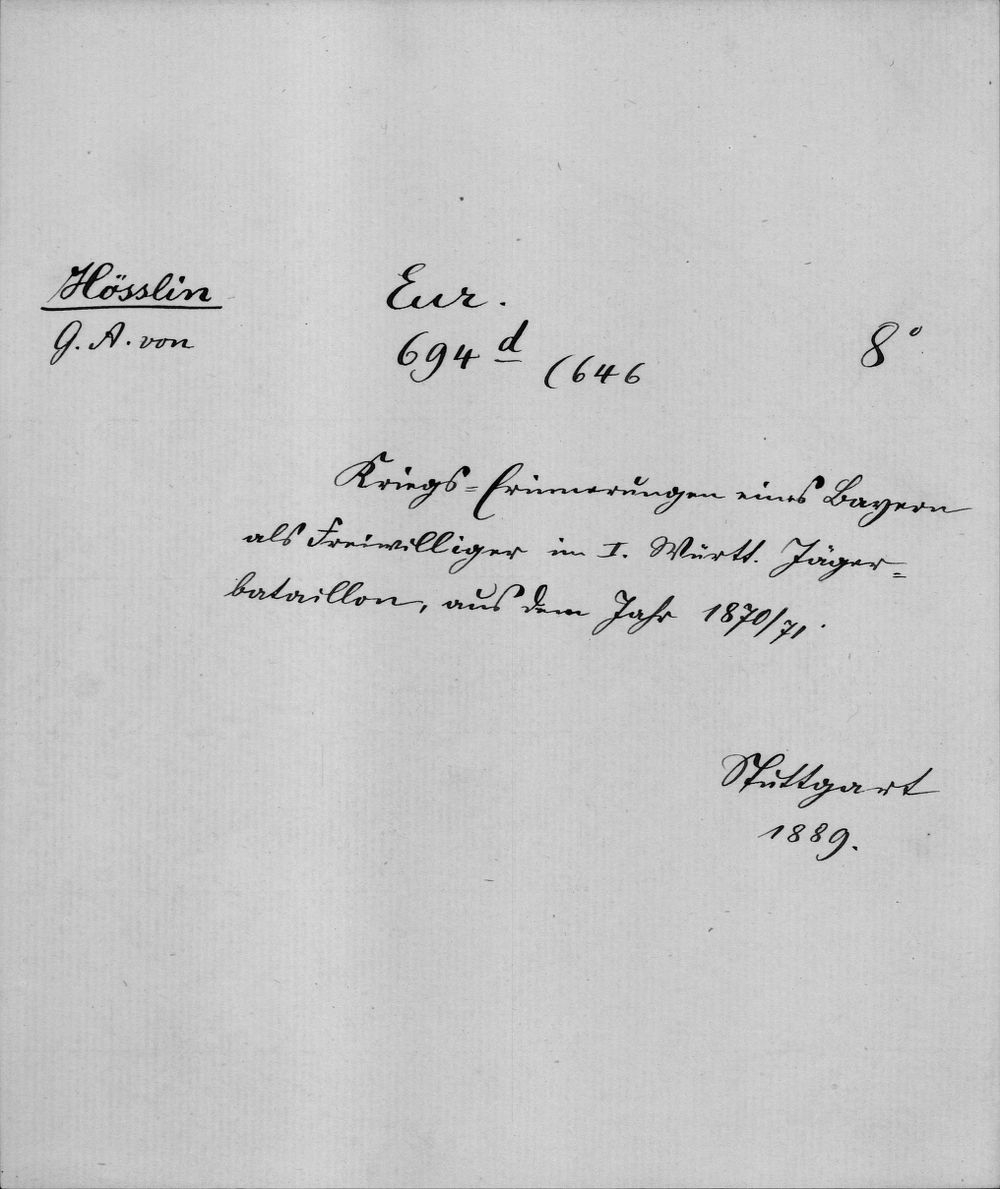 Hösslin
G. A. von
Eur.
694 d (646
8°
Kriegs-Erinnerungen eines Bayern
als Freiwilliger im I. Württ. Jäger-
bataillon, aus dem Jahr 1870/71.
Stuttgart
1889.